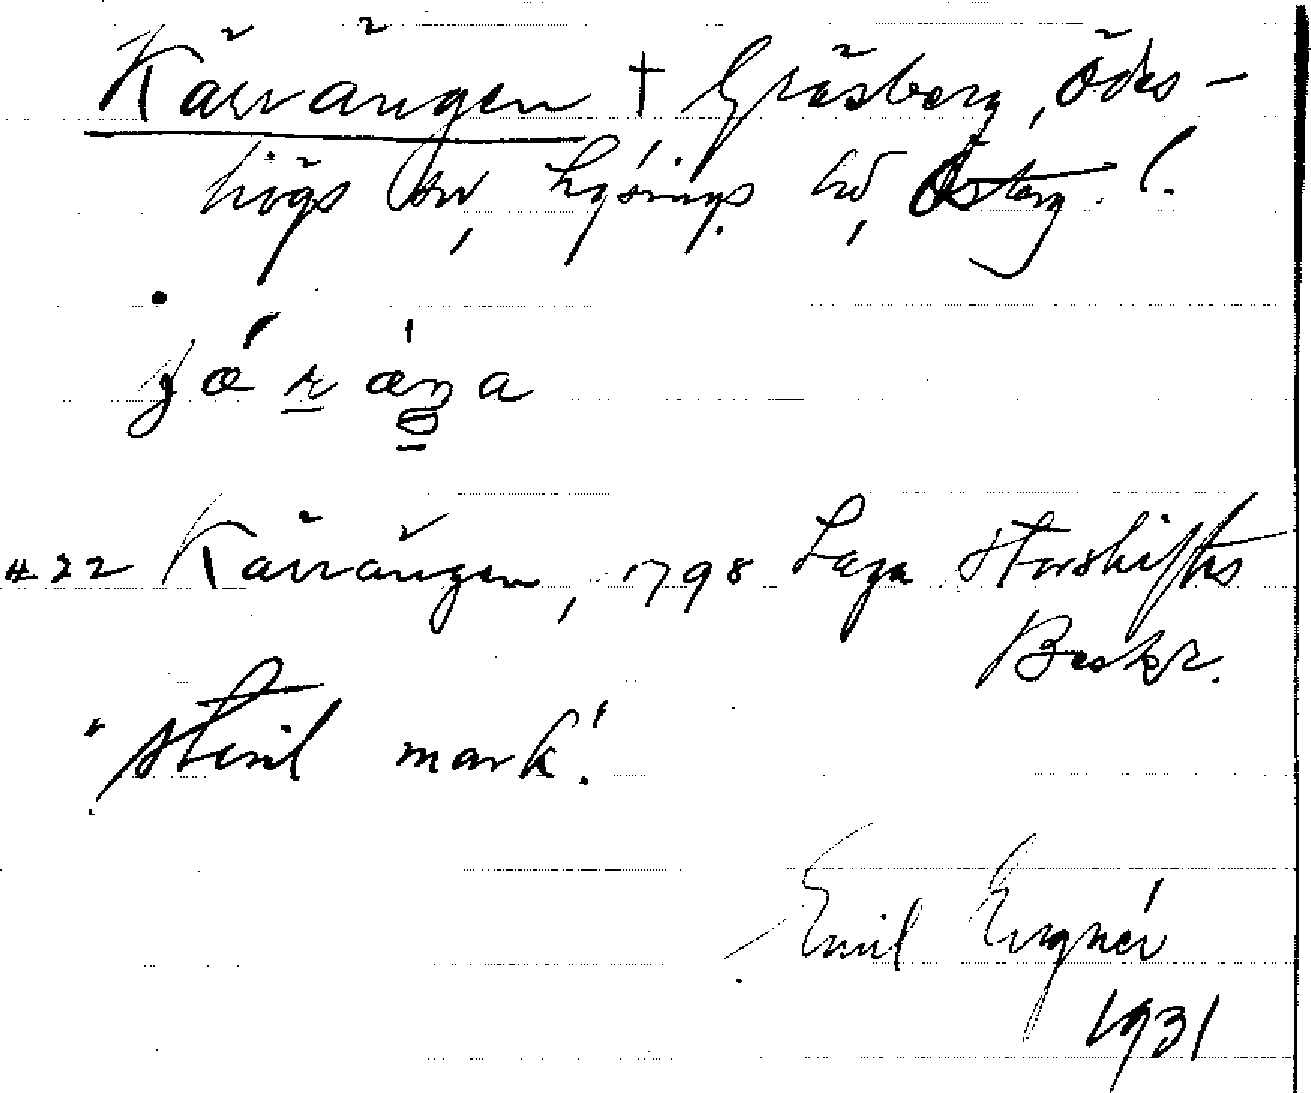 Kärrängen † Gräsberg, Ödes-
högs sn, Lysings hd, Österg. l.
jǽræŋa
#22 Kärrängen, 1798 Laga Storskiftes
Beskr.
"Steril mark."
Emil
1931